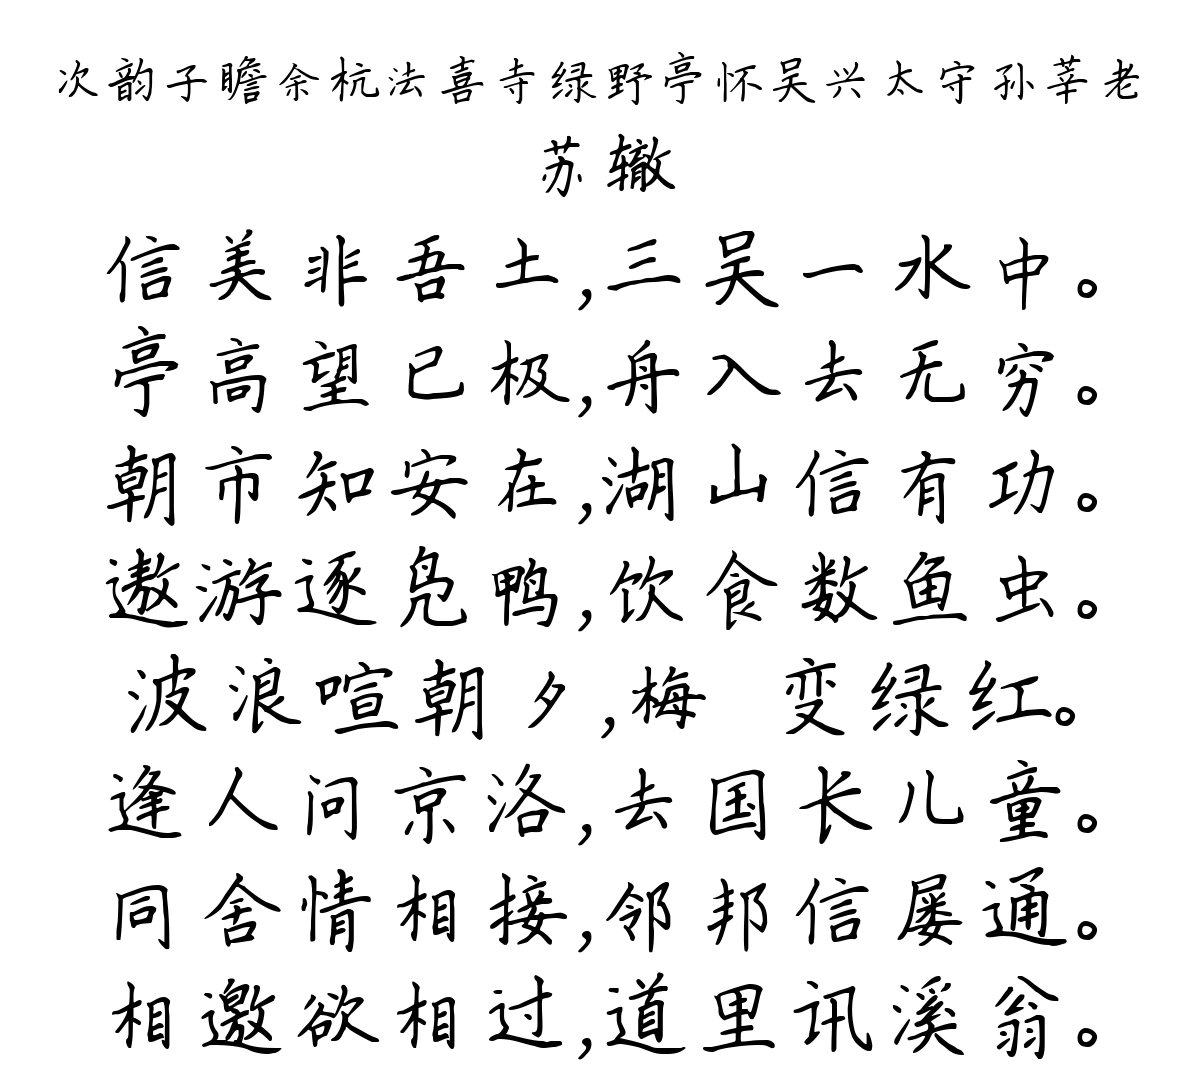 次韵子瞻余杭法喜寺绿野亭怀吴兴太守孙莘老
苏辙
信美非吾土,三吴一水中。
亭高望已极,舟入去无穷。
朝市知安在,湖山信有功。
遨游逐凫鸭,饮食数鱼虫。
波浪喧朝夕,梅 变绿红。
逢人问京洛,去国长儿童。
同舍情相接,邻邦信屡通。
相邀欲相过,道里讯溪翁。